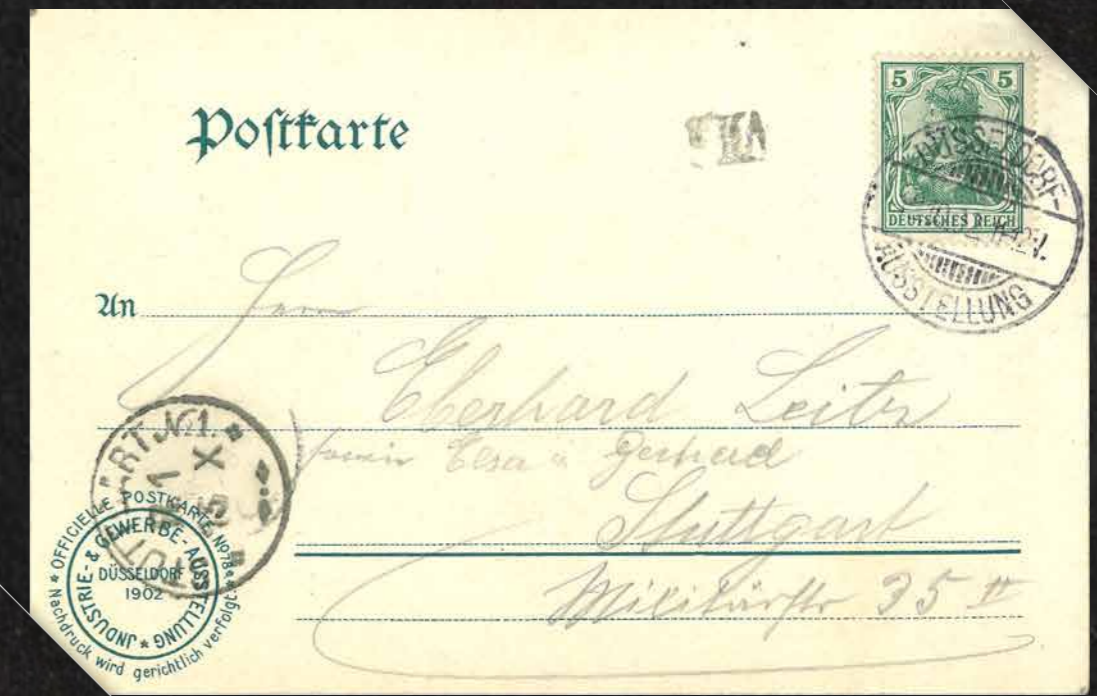 Postkarte
5 5
DEUTSCHES REICH
DÜSSELDORF-
AUSSTELLUNG
An Herrn
Eberhard Leitz
sowie Elsa u Gerhard
Stuttgart
Militärstr 35 II
№1.
1
X
* OFFICIELLE POSTKARTE No 78 *
Nachdruck wird gerichtlich verfolgt.
JNDUSTRIE- & GEWERBE-AUSSTELLUNG *
DÜSSELDORF
1902